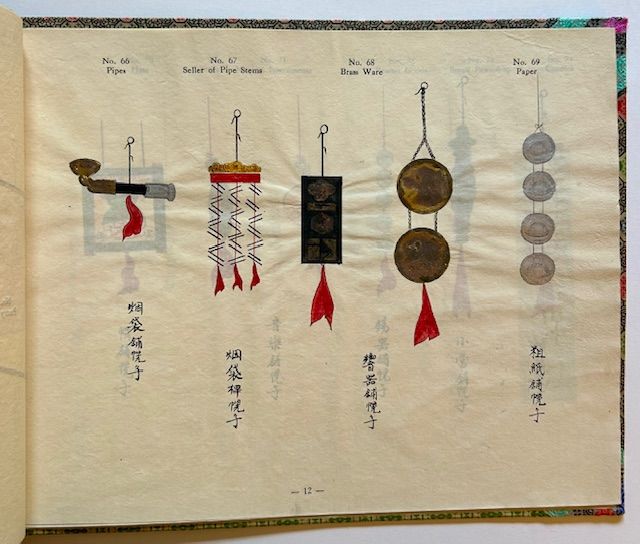 No. 66
Pipes
No. 67
Seller of Pipe Stems
No. 68
Brass Ware
No. 69
Paper
烟袋舖幌子
烟袋桿幌子
響器舖幌子
粗紙舖幌子
— 12 —